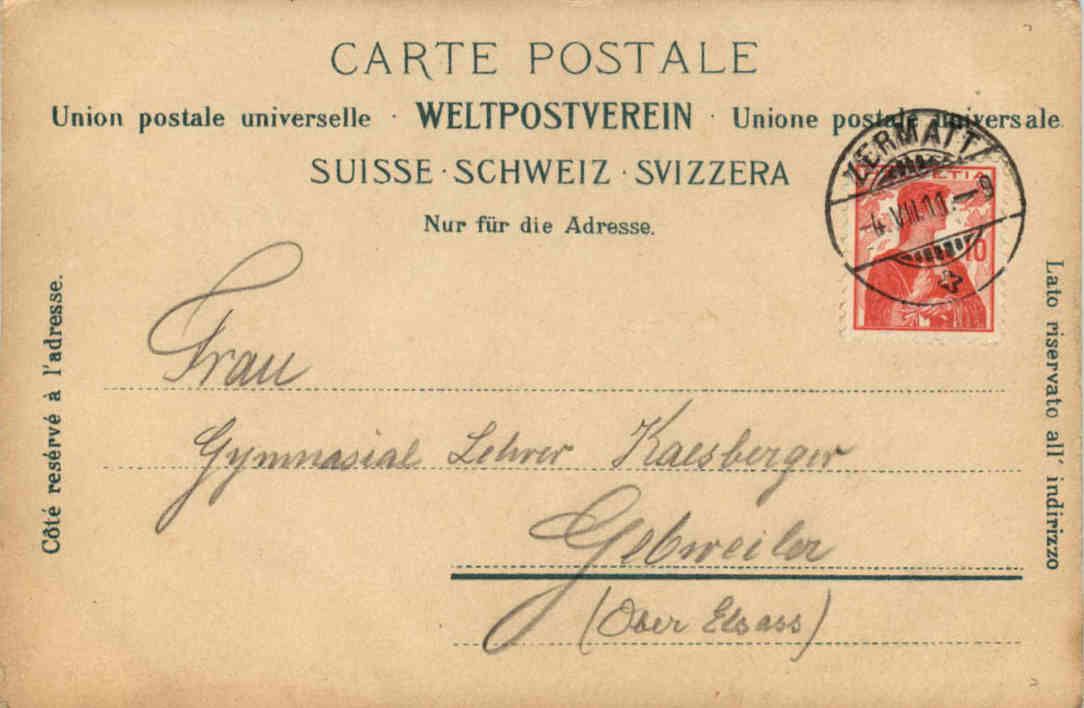 CARTE POSTALE
Union postale universelle · WELTPOSTVEREIN · Unione postale universale.
SUISSE · SCHWEIZ · SVIZZERA
Nur für die Adresse.
ZERMATT
HELVETIA
4.VIII.11.–9
10
Côté resérvé à l'adresse.
Lato riservato all' indirizzo
Frau
Gymnasial Lehrer Kaesberger
Gebweiler
(Ober Elsass)